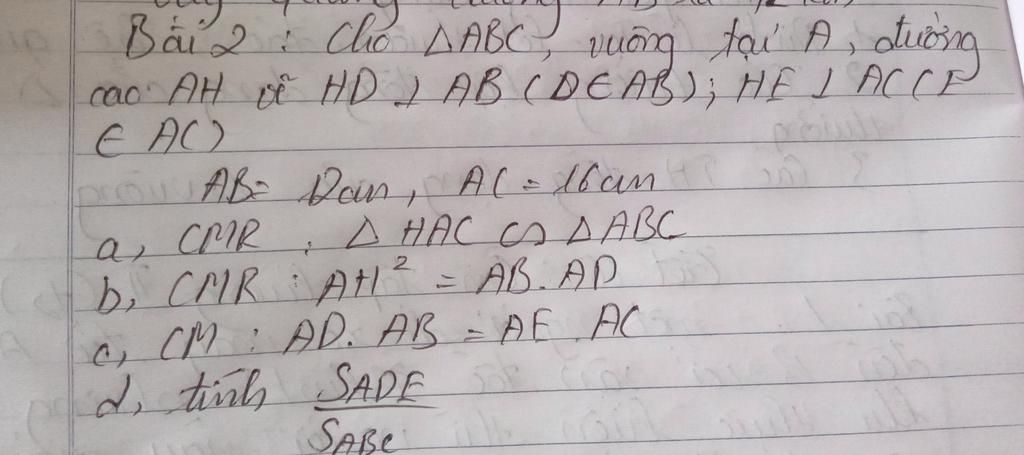 Bài 2 : Cho △ABC, vuông tại A, đường
cao AH vẽ HD ⊥ AB (D∈AB); HE ⊥ AC (E
∈ AC)
AB= 12cm, AC = 16cm
a, CMR : △ HAC ∽ △ABC
b, CMR : AH² = AB. AD
c, CM : AD. AB = AE. AC
d, tính S_ADE / S_ABC